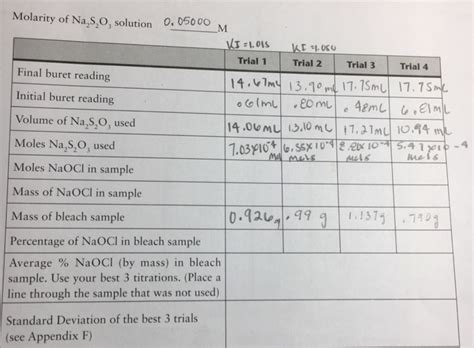 Molarity of Na₂S₂O₃ solution 0.05000 M
KI = 1.015 KI = 1.050
Trial 1 Trial 2 Trial 3 Trial 4
Final buret reading 14.67mL 13.90mL 17.75mL 17.75mL
Initial buret reading .61mL .80mL .48mL 6.81mL
Volume of Na₂S₂O₃ used 14.06mL 13.10mL 17.27mL 10.94mL
Moles Na₂S₂O₃ used 7.03×10⁻⁴ 6.55×10⁻⁴ 10⁻⁴ 5.47×10⁻⁴
mols mols mols
Moles NaOCl in sample
Mass of NaOCl in sample
Mass of bleach sample 0.926g .99 g 1.137g .790g
Percentage of NaOCl in bleach sample
Average % NaOCl (by mass) in bleach
sample. Use your best 3 titrations. (Place a
line through the sample that was not used)
Standard Deviation of the best 3 trials
(see Appendix F)